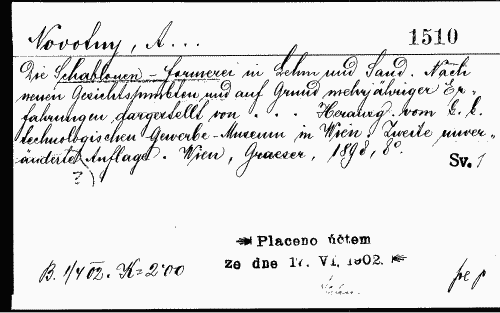 Novotny, A...
1510
Die Schablonen-formerei in Lehm und Sand. Nach
neuen Gesichtspunkten und auf Grund mehrjähriger Er-
fahrungen dargestellt von . . . Herausg. vom k. k.
technologischen Gewerbe-Museum in Wien. Zweite unver-
änderte Auflage. Wien, Graeser, 1898, 8°.
?)
Sv. 1
Placeno účtem
ze dne 17. VI. 1902.
B. 1/4 02. K = 2·00